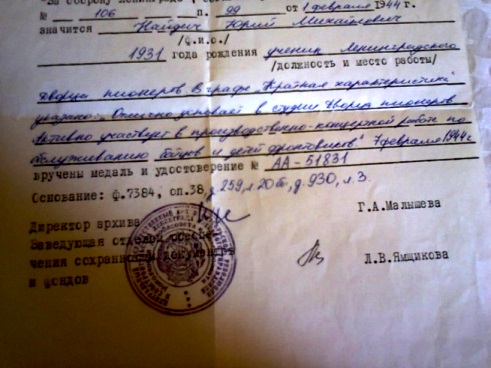 "За оборону Ленинграда",
№ 106 п. 99 от 1 февраля 1944 г.
значится Найдич Юрий Михайлович
/ф.и.о./
1931 года рождения ученик Ленинградского
/должность и место работы/
дворца пионеров В графе "Краткая характеристика"
указано: "Отлично успевает в студии Дворца пионеров
Активно участвует в производственно-концертной работе по
обслуживанию бойцов и детей фронтовиков." 7 февраля 1944 г.
вручены медаль и удостоверение № АА-51831
Основание: ф.7384, оп.38, 259, л 20 об, д.930, л.3.
Директор архива Г.А.Малышева
Заведующая отделом обеспе-
чения сохранности документов
и фондов Л.В.Ямщикова